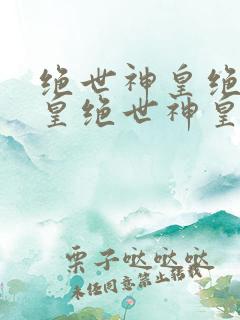 绝世神皇绝
皇绝世神皇
栗子哒哒哒
未经同意禁止转载